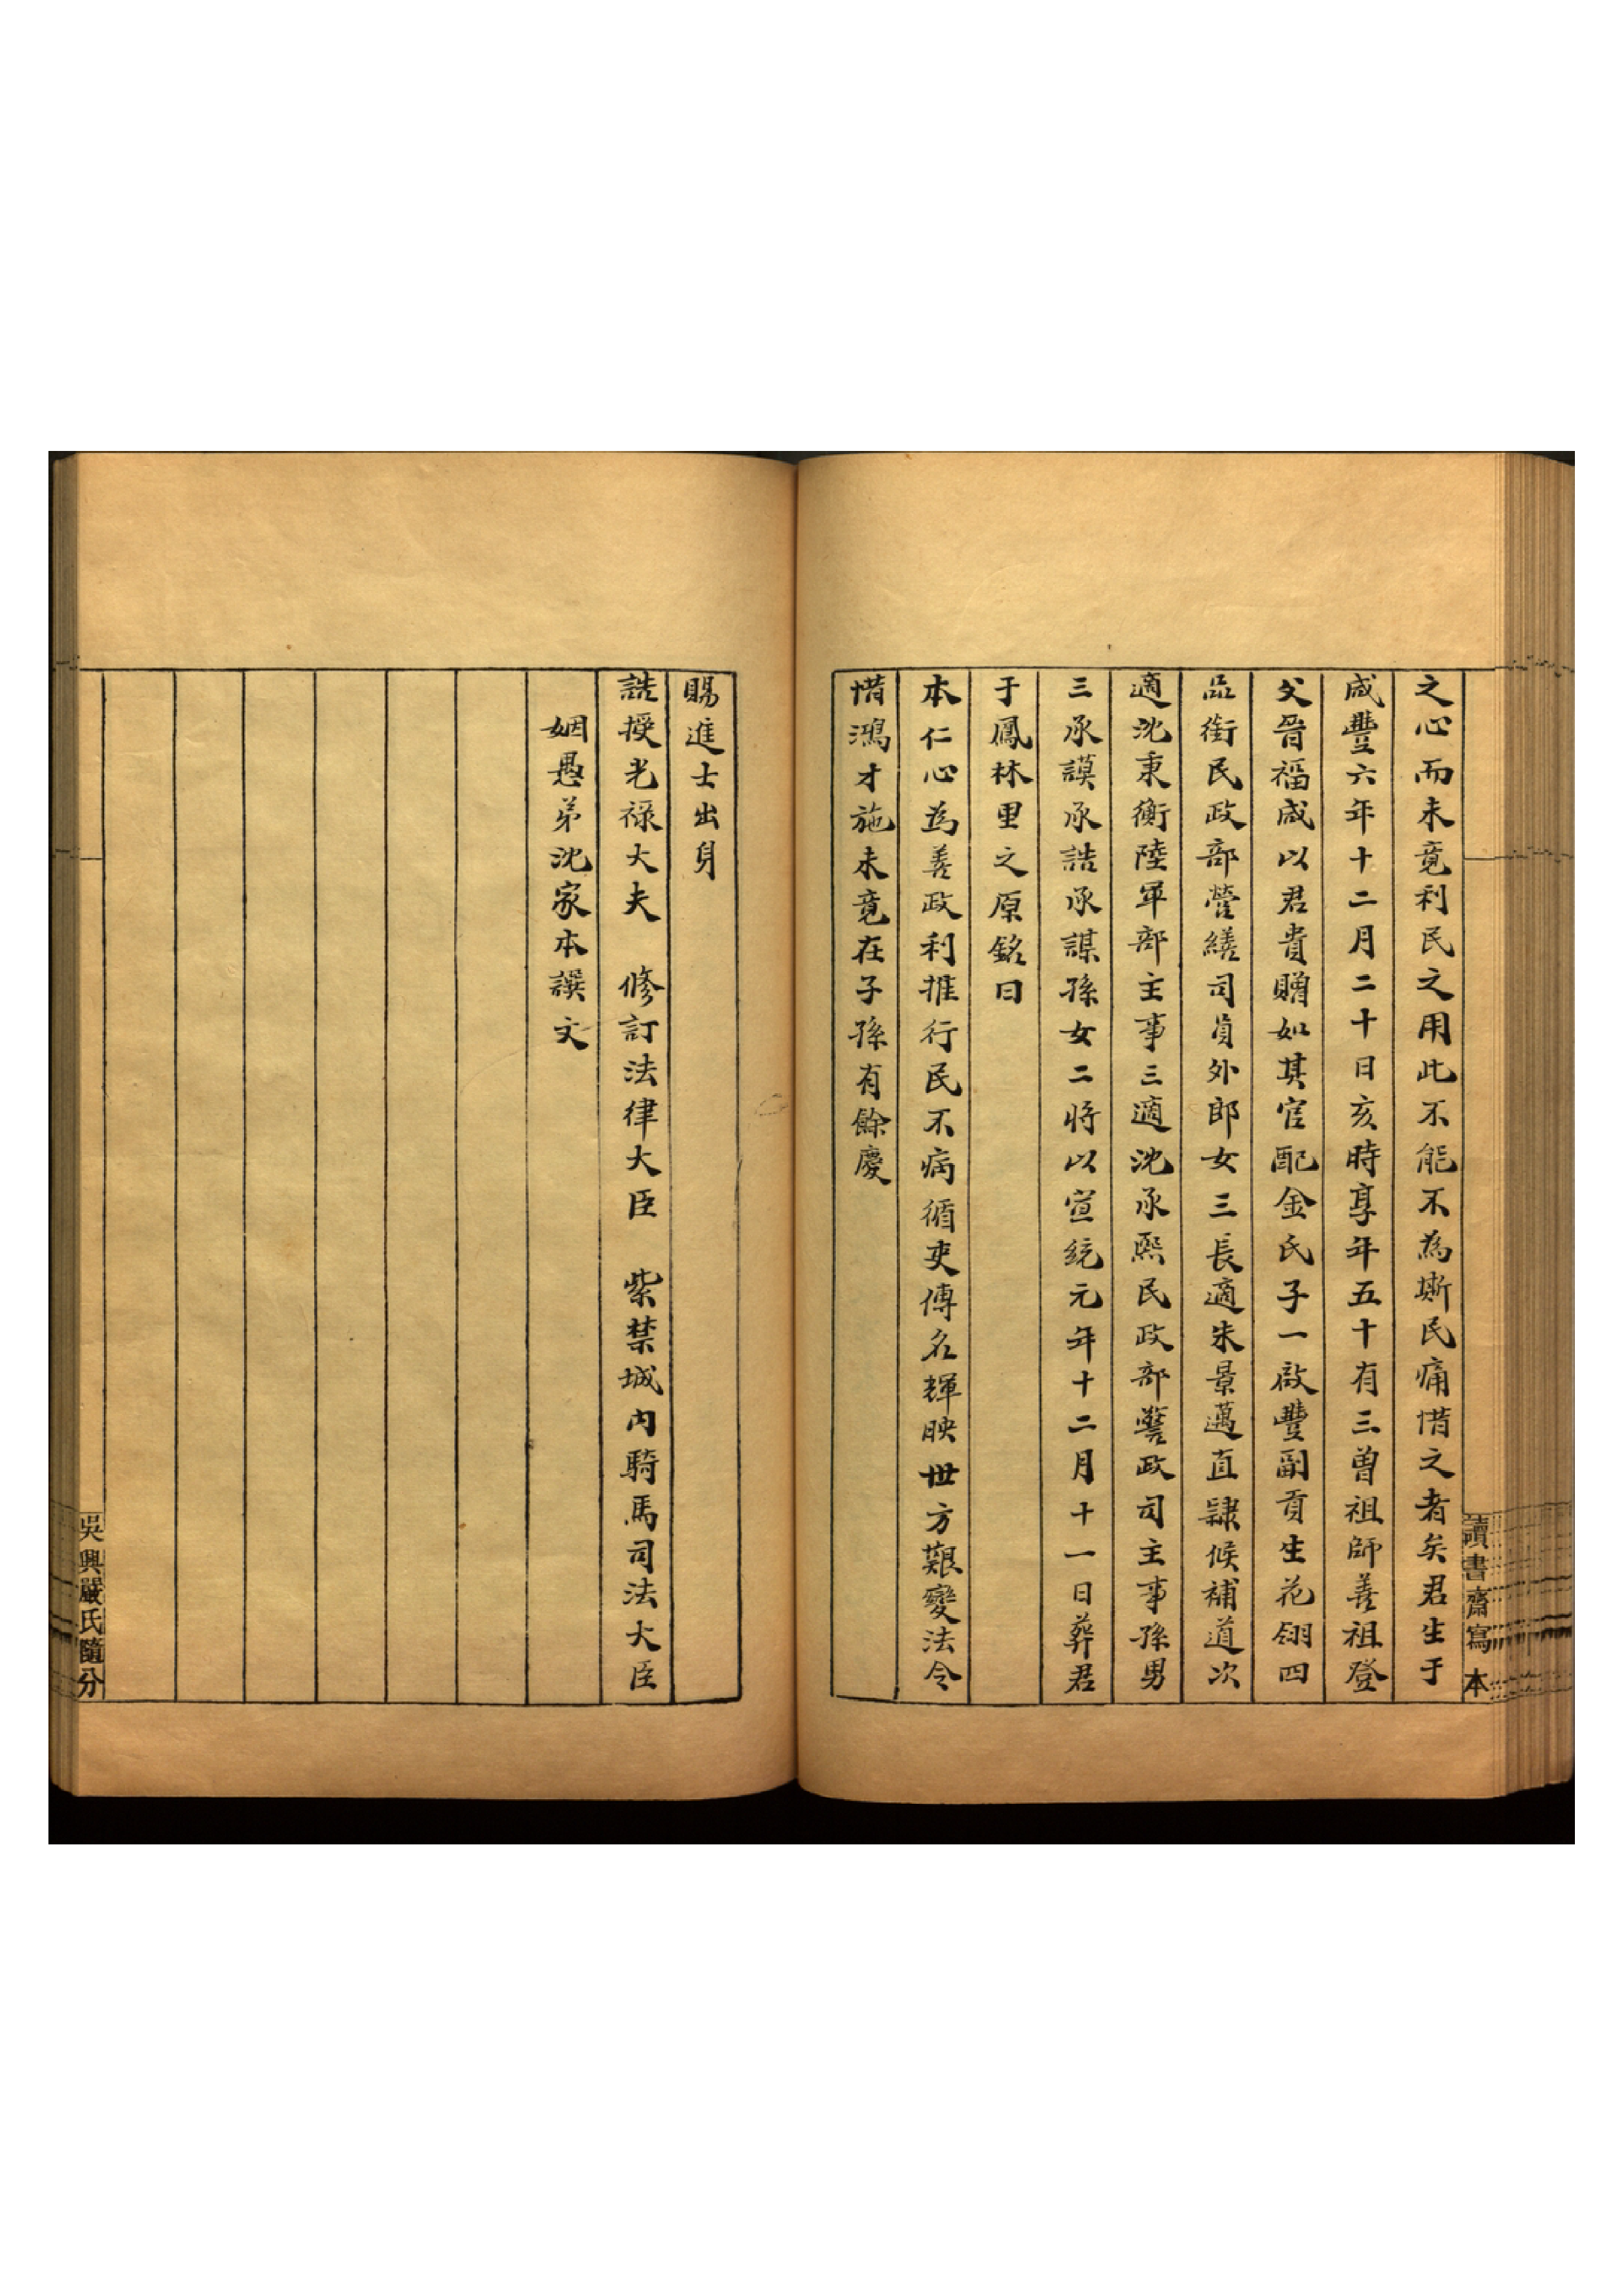 之心而未竟利民之用此不能不為斯民痛惜之者矣君生于
咸豐六年十二月二十日亥時享年五十有三曾祖師善祖登
父晉福咸以君貴贈如其官配金氏子一啟豐副貢生花翎四
品銜民政部營繕司員外郎女三長適朱景邁直隸候補道次
適沈秉衡陸軍部主事三適沈承熙民政部警政司主事孫男
三承謨承誥承謀孫女二將以宣統元年十二月十一日葬君
于鳳林里之原銘曰
本仁心為善政利推行民不病循吏傳名輝映世方艱變法令
惜鴻才施未竟在子孫有餘慶
讀書齋寫本
賜進士出身
誥授光祿大夫　修訂法律大臣　紫禁城內騎馬司法大臣
姻愚弟沈家本譔文
吳興嚴氏隨分